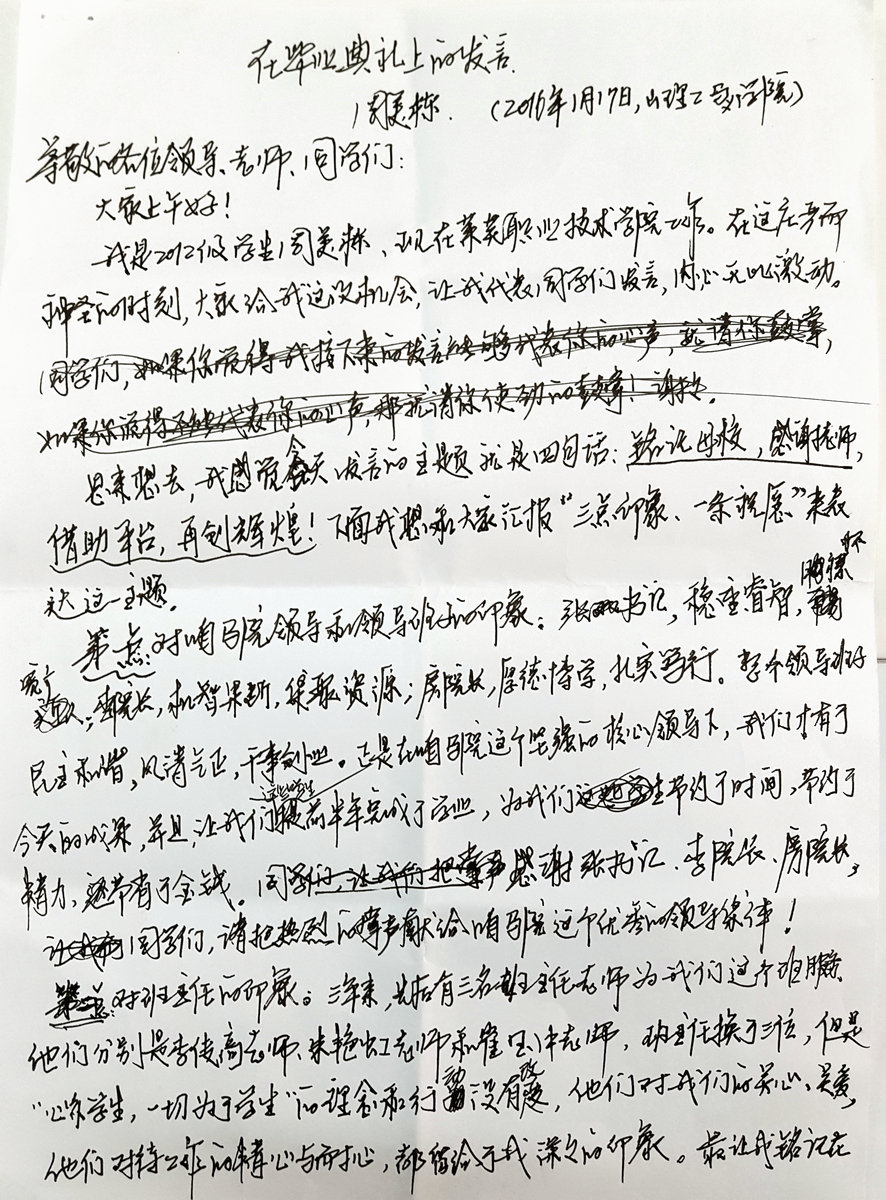 在毕业典礼上的发言
周美栋 (2016年1月17日,山理工马学院)
尊敬的各位领导、老师、同学们:
大家上午好!
我是2012级学生周美栋、现在莱芜职业技术学院工作。在这庄严而
神圣的时刻,大家给我这次机会,让我代表同学们发言,内心无比激动。
同学们,如果你觉得我接下来的发言能够代表你的心声,就请你鼓掌,
如果你觉得不能代表你的心声,那就请你使劲的鼓掌!谢谢。
思来想去,我感觉今天发言的主题就是四句话:铭记母校,感谢老师,
借助平台,再创辉煌!下面我想和大家汇报“三点印象、一条祝愿”来表
达这一主题。
第一点:对咱马院领导和领导班子的印象:张书记,稳重睿智,胸襟
宽广;李院长,机智果断,集聚资源;房院长,厚德博学,扎实笃行。整个领导班子
民主和谐,风清气正,干事创业。正是在咱马院这个坚强的核心领导下,我们才有了
今天的成果,并且,让我们这些学生提前半年完成了学业,为我们节约了时间,节约了
精力,还节省了金钱。同学们,让我们把掌声感谢张书记、李院长、房院长,
让我们同学们,请把热烈的掌声献给咱马院这个优秀的领导集体!
第二点:对班主任的印象。三年来,共有三名班主任老师为我们这个班服务
他们分别是李俊高老师、朱艳红老师和崔宝中老师,班主任换了三位,但是
“心系学生,一切为了学生”的理念和行动没有改变,他们对我们的关心、关爱,
他们对待工作的精心与耐心,都留给了我深深的印象。最让我铭记在